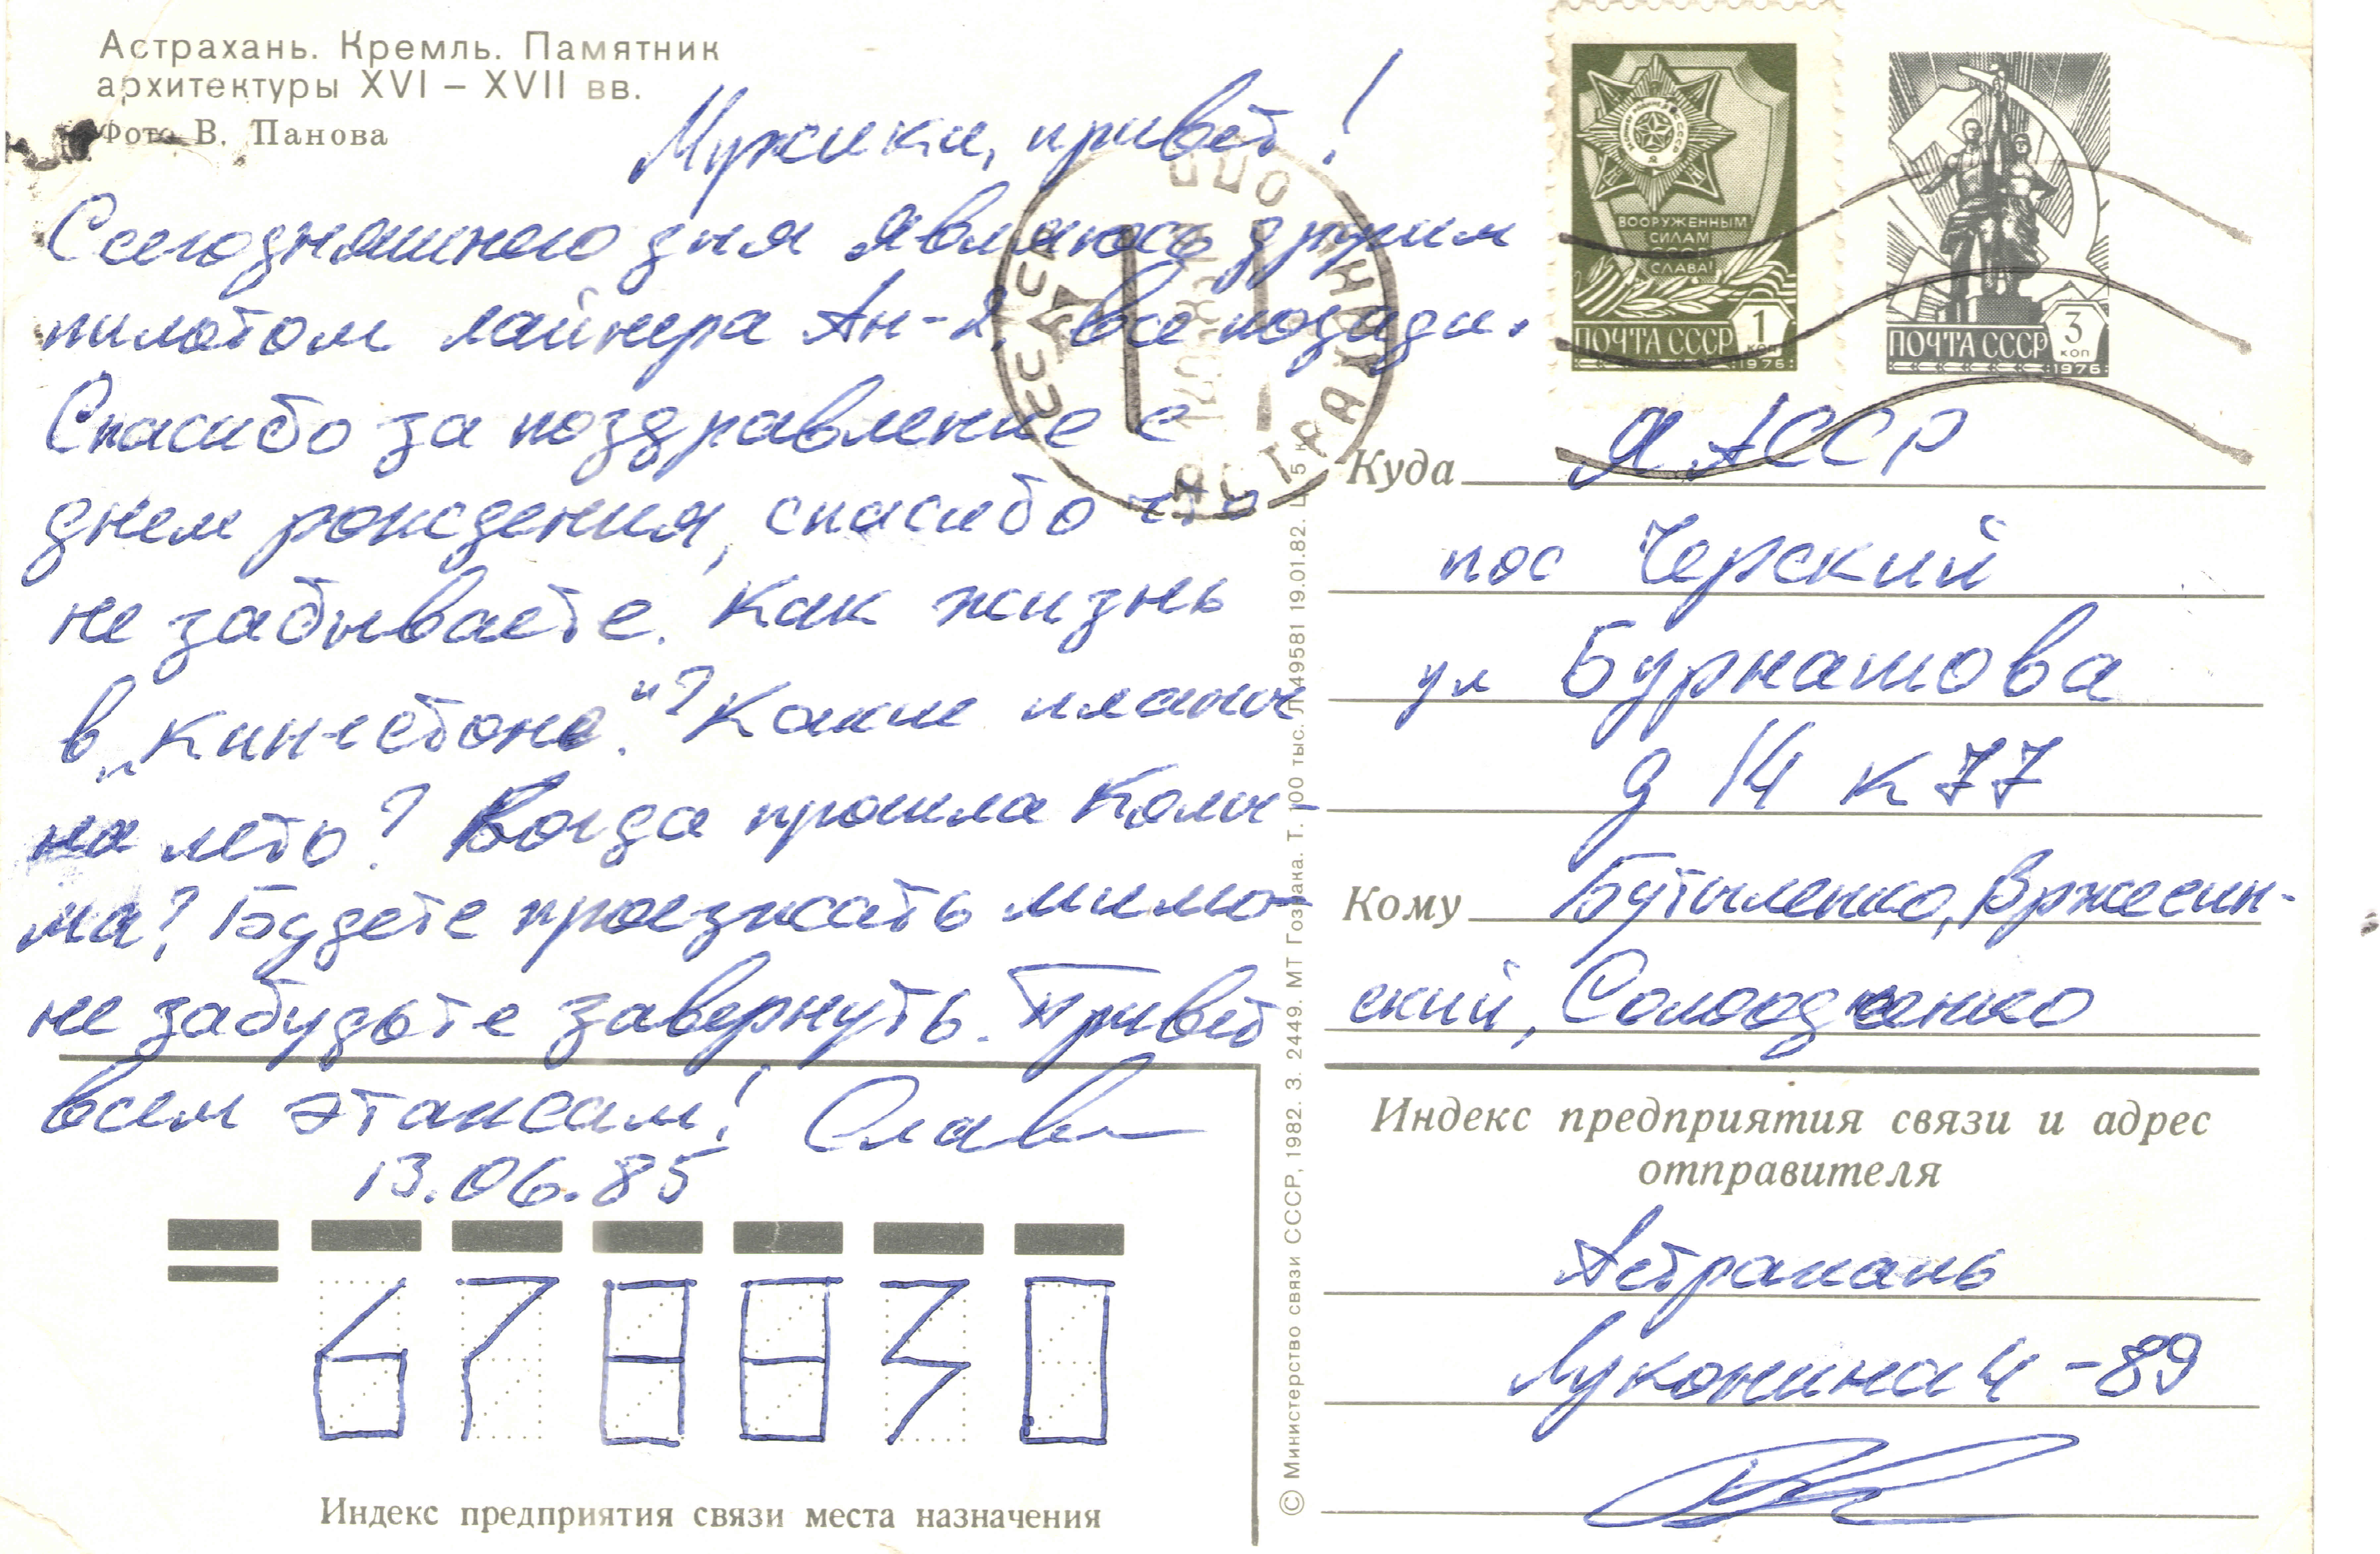 Астрахань. Кремль. Памятник
архитектуры XVI – XVII вв.
Фото В. Панова
Мужики, привет!
С сегодняшнего дня являюсь другим
пилотом лайнера Ан-2. Все позади.
Спасибо за поздравление с
днем рождения, спасибо что
не забываете. Как жизнь
в „Кингстоне."? Какие планы
на лето? Когда прошла Колы-
ма? Будете проезжать мимо -
не забудьте завернуть. Привет
всем этапсам! Слава
13.06.85
678830
Индекс предприятия связи места назначения
ВООРУЖЕННЫМ
СИЛАМ
СССР
СЛАВА!
ПОЧТА СССР 1 коп
1976
ПОЧТА СССР 3 коп
1976
АСТРАХАНЬ
СССР
Куда Я АССР
пос Черский
ул Бурнашова
д 14 к 77
Кому Бутыленко, Вржесин-
ский, Солодженко
Индекс предприятия связи и адрес
отправителя
Астрахань
Луконина 4 - 89
© Министерство связи СССР, 1982. З. 2449. МТ Гознака. Т. 100 тыс. Л49581 19.01.82. Ц. 5 к